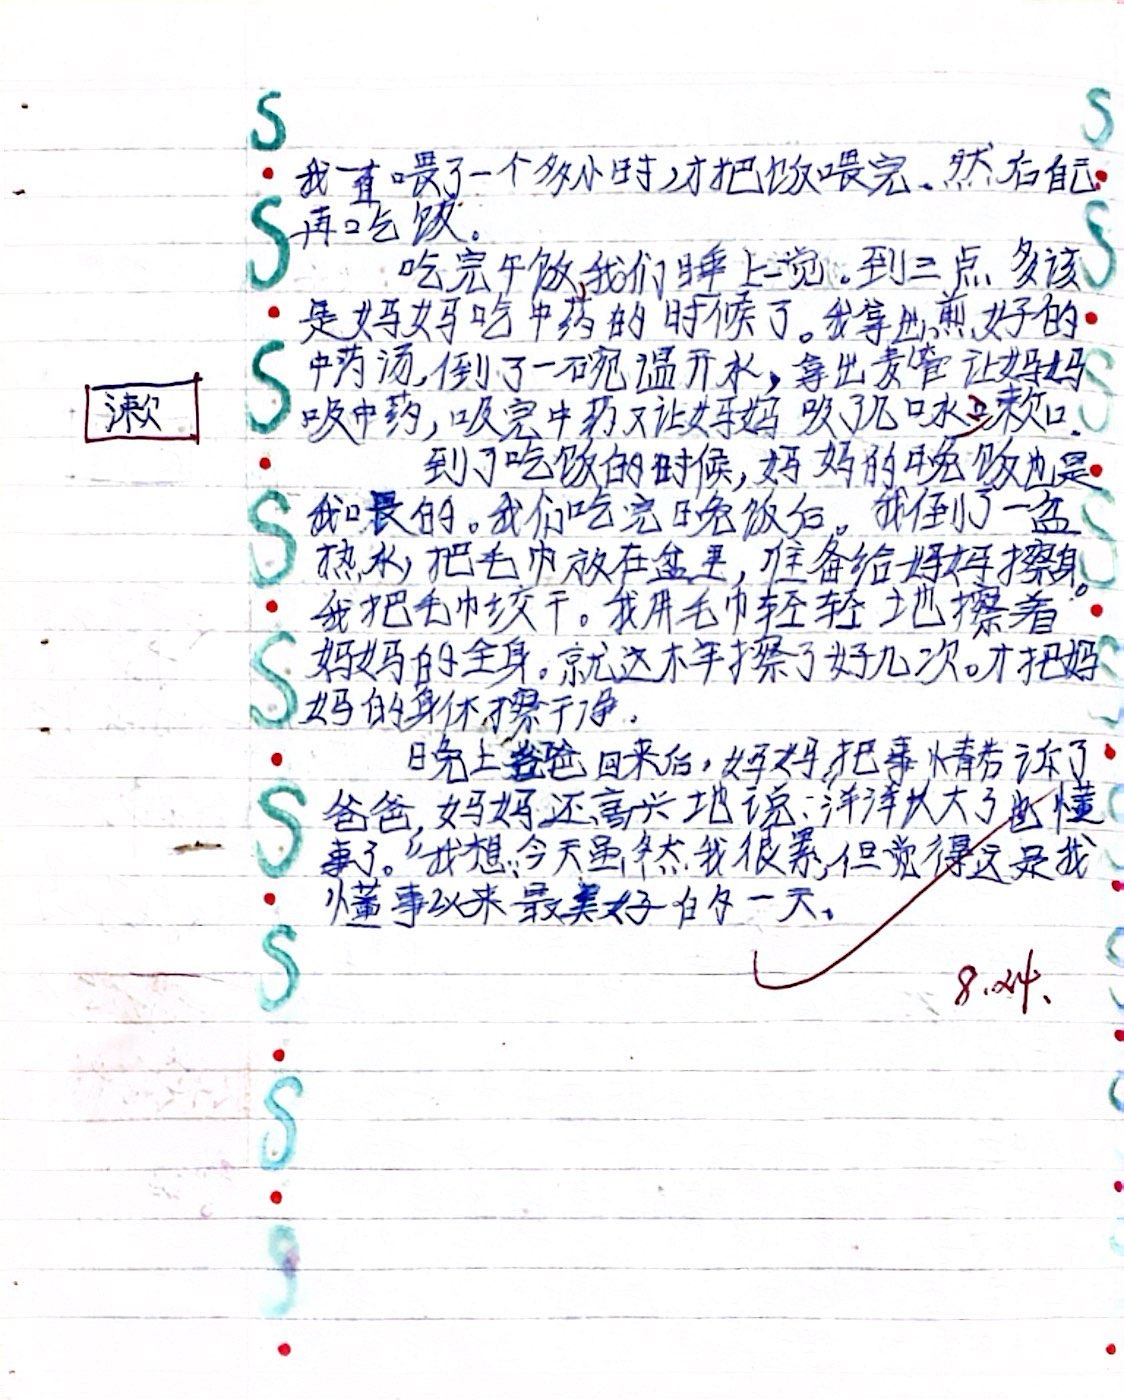 我一直喂了一个多小时,才把饭喂完.然后自己
再吃饭。
吃完午饭,我们睡上一觉.到三点多该
是妈妈吃中药的时候了。我拿出煎好的
中药汤,倒了一碗温开水,拿出麦管让妈妈
漱
吸中药,吸完中药又让妈妈吸了几口水漱口.
到了吃饭的时候,妈妈的晚饭也是
我喂的。我们吃完晚饭后。我倒了一盆
热水,把毛巾放在盆里,准备给妈妈擦身。
我把毛巾绞干。我用毛巾轻轻地擦着
妈妈的全身.就这样擦了好几次。才把妈
妈的身体擦干净.
晚上爸爸回来后,妈妈把事情告诉了
爸爸,妈妈还高兴地说:洋洋长大了也懂
事了。”我想:今天虽然我很累,但觉得这是我
懂事以来最美好的一天.
8.24.